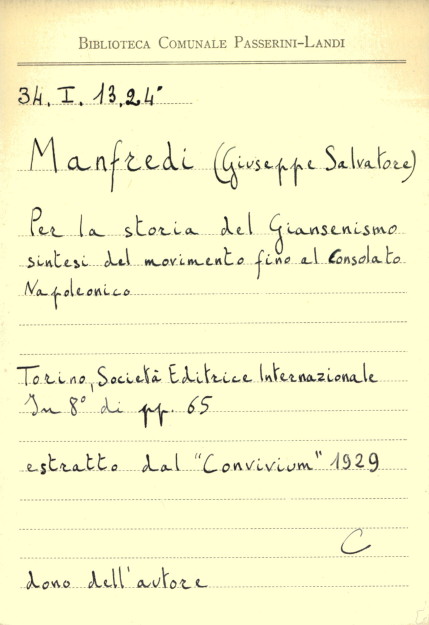 BIBLIOTECA COMUNALE PASSERINI-LANDI
34. I. 13.24°
Manfredi (Giuseppe Salvatore)
Per la storia del Giansenismo
sintesi del movimento fino al Consolato
Napoleonico
Torino, Società Editrice Internazionale
In 8° di pp. 65
estratto dal "Convivium" 1929
C
dono dell'autore